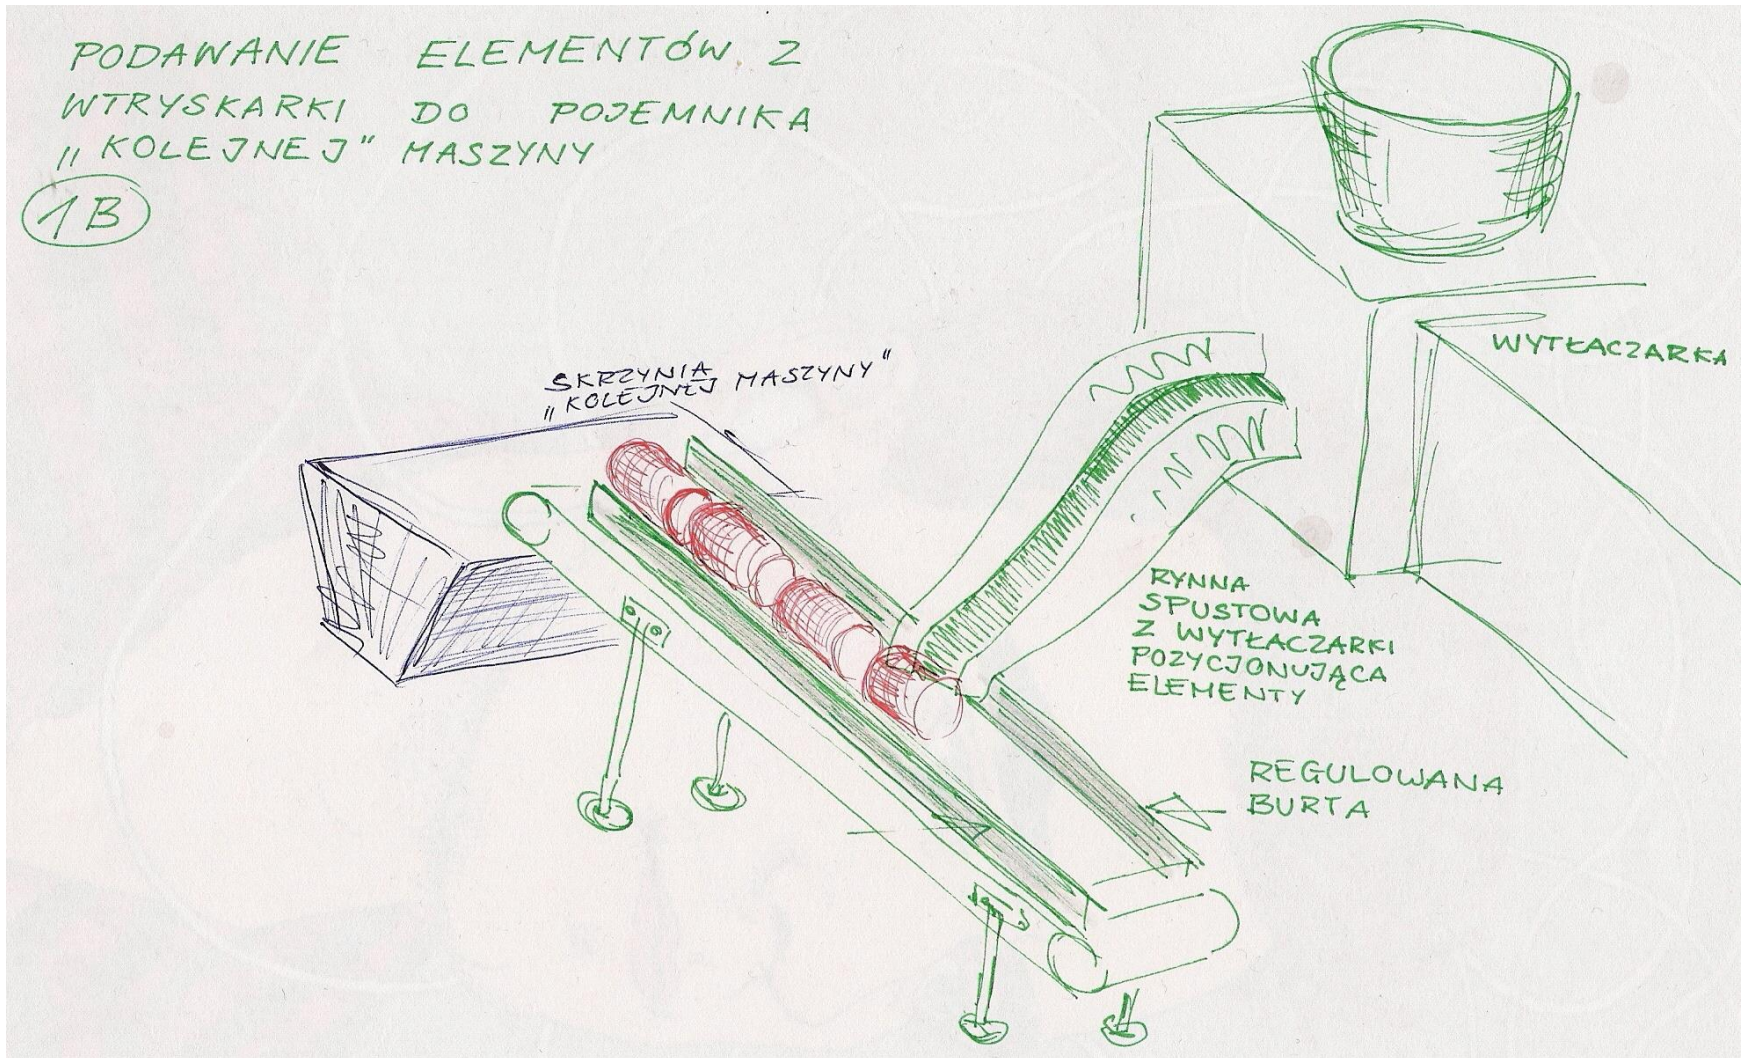 PODAWANIE ELEMENTÓW Z
WTRYSKARKI DO POJEMNIKA
„KOLEJNEJ" MASZYNY
1B
SKRZYNIA
„KOLEJNEJ MASZYNY"
WYTŁACZARKA
RYNNA
SPUSTOWA
Z WYTŁACZARKI
POZYCJONUJĄCA
ELEMENTY
REGULOWANA
BURTA